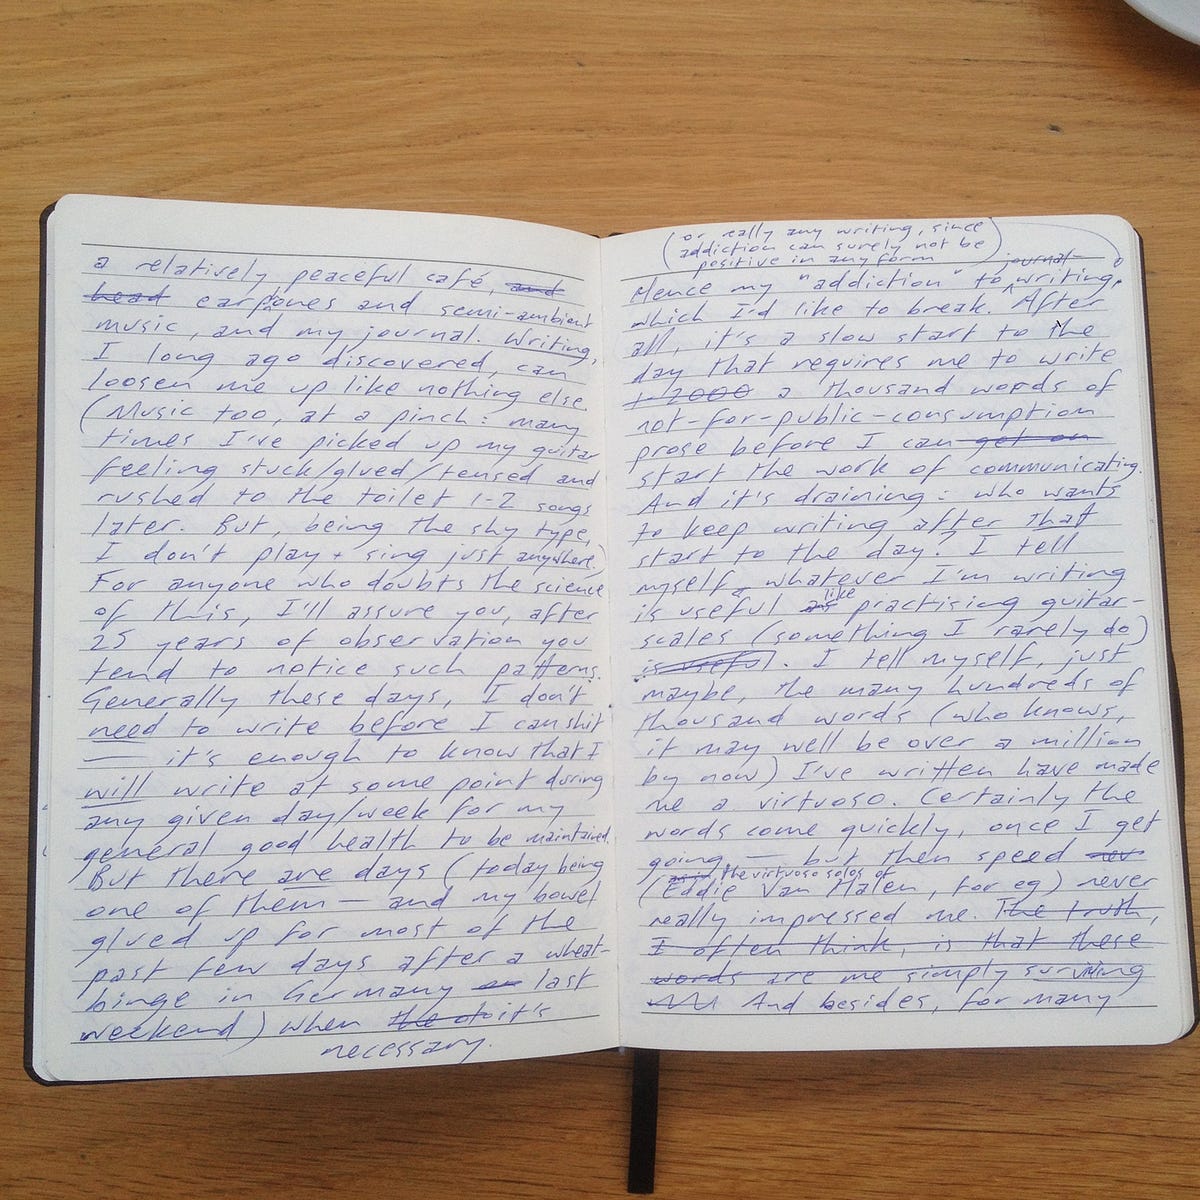 a relatively peaceful café, and
head earphones and semi-ambient
music, and my journal. Writing,
I long ago discovered, can
loosen me up like nothing else.
(Music too, at a pinch: many
times I've picked up my guitar
feeling stuck/glued/tensed and
rushed to the toilet 1-2 songs
later. But, being the shy type,
I don't play + sing just anywhere.)
For anyone who doubts the science
of this, I'll assure you, after
25 years of observation you
tend to notice such patterns.
Generally these days, I don't
need to write before I can shit
— it's enough to know that I
will write at some point during
any given day/week for my
general good health to be maintained.
But there are days (today being
one of them — and my bowel
glued up for most of the
past few days after a wheat-
binge in Germany last
weekend) when it's
necessary.
(or really any writing, since
addiction can surely not be
positive in any form)
journal-
Hence my "addiction" to writing,
which I'd like to break. After
all, it's a slow start to the
day that requires me to write
1-2000 a thousand words of
not-for-public-consumption
prose before I can get on
start the work of communicating.
And it's draining: who wants
to keep writing after that
start to the day? I tell
myself whatever I'm writing
like
is useful practising guitar-
scales (something I rarely do)
is useful. I tell myself, just
maybe, the many hundreds of
thousand words (who knows,
it may well be over a million
by now) I've written have made
me a virtuoso. Certainly the
words come quickly, once I get
going — but then speed
the virtuoso solos of
(Eddie Van Halen, for eg) never
really impressed me. The truth,
I often think, is that these
words are me simply surviving
And besides, for many